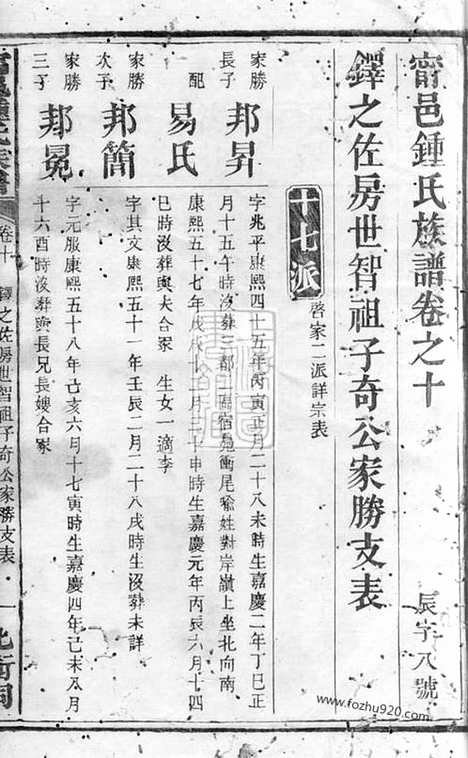 甯邑鍾氏族譜卷之十
辰字八號
鐸之佐房世智祖子奇公家勝支表
十七派
啓家二派詳宗表
家勝長子
邦昇
字兆平康熙四十五年丙寅正月二十八未時生嘉慶二年丁巳正
月十五午時沒葬三都
坐北向南
配
易氏
康熙五十七年戊戌十二月三十申時生嘉慶元年丙辰六月十四
巳時沒葬與夫合冢 生女一適李
家勝次子
邦簡
字其文康熙五十一年壬辰二月二十八戌時生沒葬未詳
家勝三子
邦冕
字元服康熙五十八年己亥六月十七寅時生嘉慶四年己未八月
十六酉時沒葬與長兄長嫂合冢
甯邑鍾氏族譜
卷十 鐸之佐房世智祖子奇公家勝支表
一
www.fozhu920.com